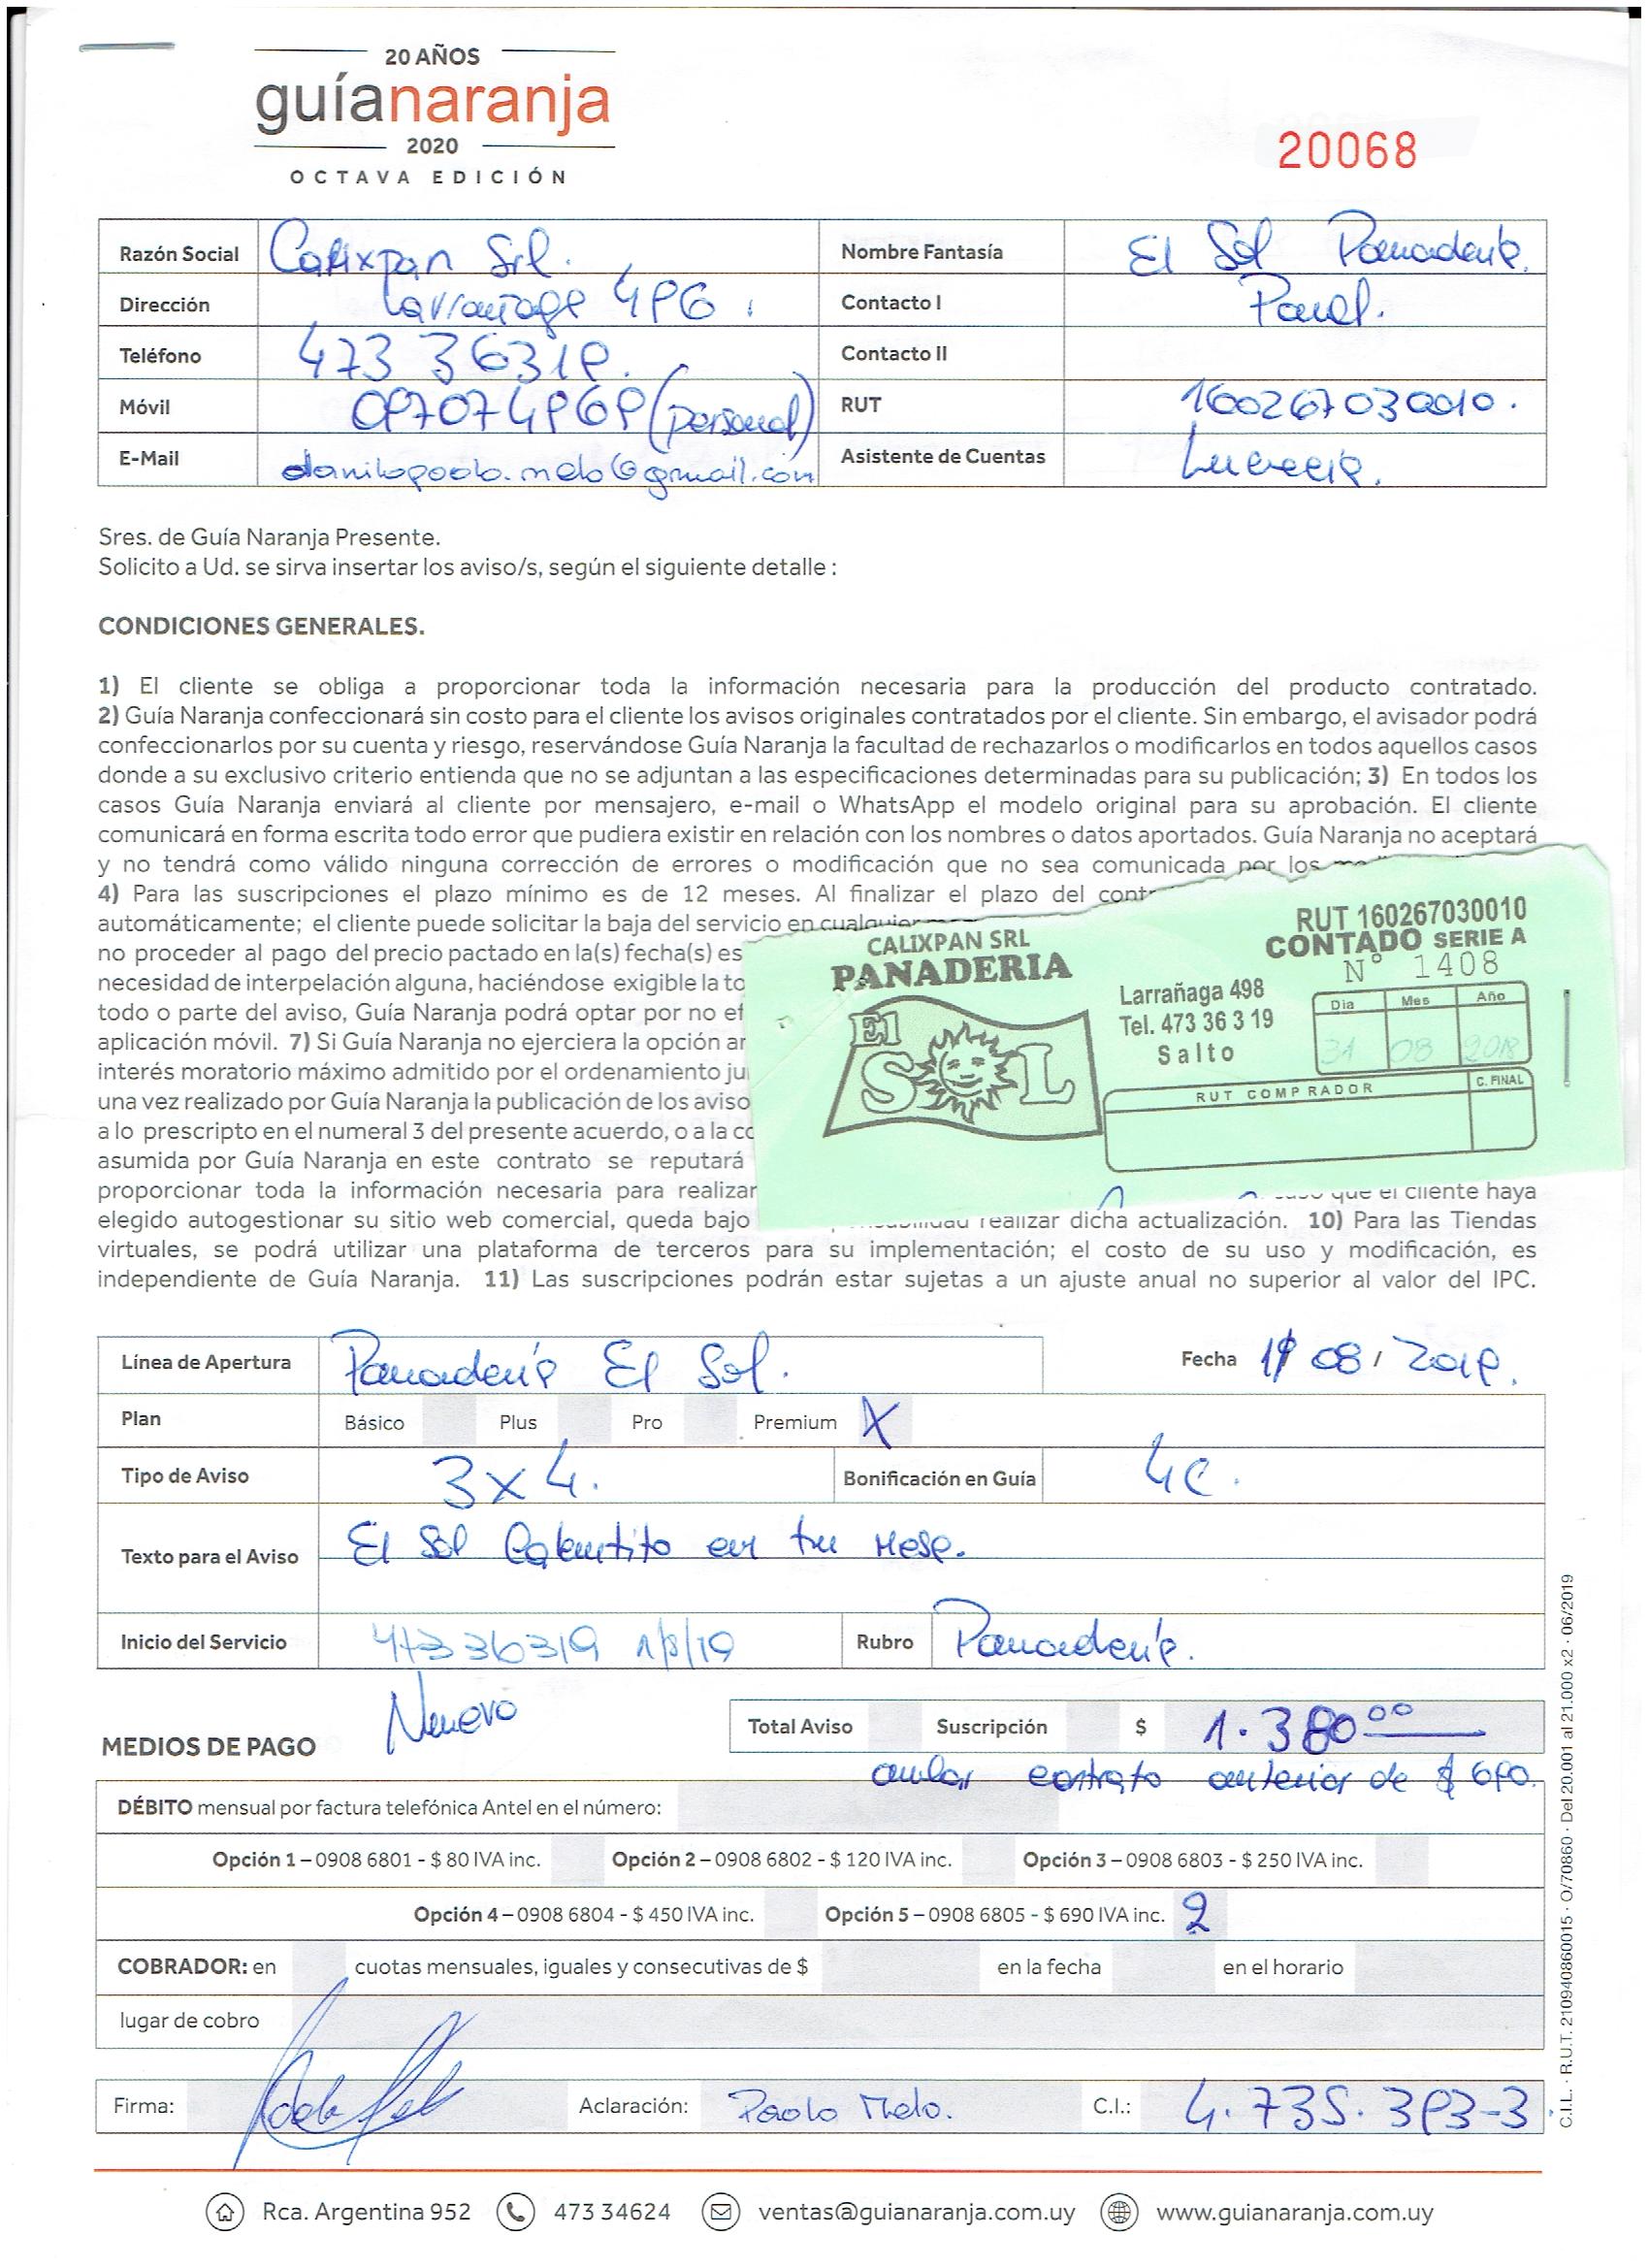 20 AÑOS
guíanaranja
2020
OCTAVA EDICIÓN
20068
Razón Social Calixpan Srl. Nombre Fantasía El Sol Panadería.
Dirección Larrañaga 496. Contacto I
Teléfono 473 36319. Contacto II
Móvil 097074969 (personal) RUT 160267030010.
E-Mail danilopaolo.melo@gmail.com Asistente de Cuentas Lucrecia.
Sres. de Guía Naranja Presente.
Solicito a Ud. se sirva insertar los aviso/s, según el siguiente detalle :
CONDICIONES GENERALES.
1) El cliente se obliga a proporcionar toda la información necesaria para la producción del producto contratado.
2) Guía Naranja confeccionará sin costo para el cliente los avisos originales contratados por el cliente. Sin embargo, el avisador podrá
confeccionarlos por su cuenta y riesgo, reservándose Guía Naranja la facultad de rechazarlos o modificarlos en todos aquellos casos
donde a su exclusivo criterio entienda que no se adjuntan a las especificaciones determinadas para su publicación; 3) En todos los
casos Guía Naranja enviará al cliente por mensajero, e-mail o WhatsApp el modelo original para su aprobación. El cliente
comunicará en forma escrita todo error que pudiera existir en relación con los nombres o datos aportados. Guía Naranja no aceptará
y no tendrá como válido ninguna corrección de errores o modificación que no sea comunicada por los
4) Para las suscripciones el plazo mínimo es de 12 meses. Al finalizar el plazo del cont
automáticamente; el cliente puede solicitar la baja del servicio en cualquier
no proceder al pago del precio pactado en la(s) fecha(s) es
necesidad de interpelación alguna, haciéndose exigible la to
todo o parte del aviso, Guía Naranja podrá optar por no ef
aplicación móvil. 7) Si Guía Naranja no ejerciera la opción an
interés moratorio máximo admitido por el ordenamiento ju
una vez realizado por Guía Naranja la publicación de los aviso
a lo prescripto en el numeral 3 del presente acuerdo, o a la co
asumida por Guía Naranja en este contrato se reputará
proporcionar toda la información necesaria para realizar que el cliente haya
elegido autogestionar su sitio web comercial, queda bajo realizar dicha actualización. 10) Para las Tiendas
virtuales, se podrá utilizar una plataforma de terceros para su implementación; el costo de su uso y modificación, es
independiente de Guía Naranja. 11) Las suscripciones podrán estar sujetas a un ajuste anual no superior al valor del IPC.
CALIXPAN SRL
PANADERIA
El
SOL
RUT 160267030010
CONTADO SERIE A
N° 1408
Larrañaga 498
Tel. 473 36 3 19
Salto
Dia Mes Año
31 08 2018
RUT COMPRADOR C. FINAL
Línea de Apertura Panadería El Sol. Fecha 1/ 08 / 2019.
Plan Básico Plus Pro Premium X
Tipo de Aviso 3x4. Bonificación en Guía 4c.
Texto para el Aviso El Sol Calentito en tu mesa.
Inicio del Servicio 47336319 1/8/19 Rubro Panadería.
Nuevo
MEDIOS DE PAGO
Total Aviso Suscripción $ 1.380 00
anular contrato anterior de $ 690.
DÉBITO mensual por factura telefónica Antel en el número:
Opción 1 – 0908 6801 - $ 80 IVA inc. Opción 2 – 0908 6802 - $ 120 IVA inc. Opción 3 – 0908 6803 - $ 250 IVA inc.
Opción 4 – 0908 6804 - $ 450 IVA inc. Opción 5 – 0908 6805 - $ 690 IVA inc. 2
COBRADOR: en cuotas mensuales, iguales y consecutivas de $ en la fecha en el horario
lugar de cobro
Firma: Aclaración: Paolo Melo. C.I.: 4.735.393-3
Rca. Argentina 952 473 34624 ventas@guianaranja.com.uy www.guianaranja.com.uy
C.I.L. · R.U.T. 210940860015 · O/70860 · Del 20.001 al 21.000 x2 · 06/2019